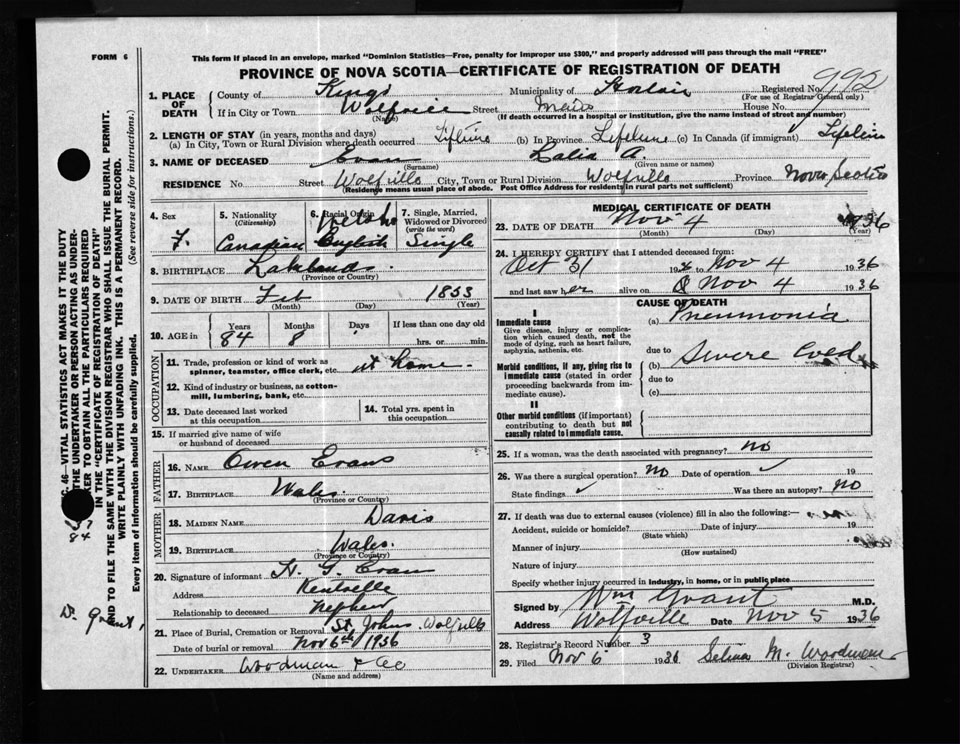 FORM 6
This form if placed in an envelope, marked "Dominion Statistics—Free, penalty for improper use $300," and properly addressed will pass through the mail "FREE"
PROVINCE OF NOVA SCOTIA—CERTIFICATE OF REGISTRATION OF DEATH
1. PLACE OF DEATH County of Kings Municipality of Registered No. 995
(For use of Registrar General only)
If in City or Town Street Main House No.
(Name) (If death occurred in a hospital or institution, give the name instead of street and number)
2. LENGTH OF STAY (in years, months and days)
(a) In City, Town or Rural Division where death occurred Lifetime (b) In Province Lifetime (c) In Canada (if immigrant) Lifetime
3. NAME OF DECEASED Evans A.
(Surname) (Given name or names)
RESIDENCE No. Street Wolfville City, Town or Rural Division Wolfville Province Nova Scotia
(Residence means usual place of abode. Post Office Address for residents in rural parts not sufficient)
4. Sex F.
5. Nationality (Citizenship) Canadian
6. Racial Origin Welsh English
7. Single, Married, Widowed or Divorced (write the word) Single
8. BIRTHPLACE Lakelands.
(Province or Country)
9. DATE OF BIRTH Feb 1853
(Month) (Day) (Year)
10. AGE in Years Months Days If less than one day old
84 8 hrs. or min.
OCCUPATION
11. Trade, profession or kind of work as spinner, teamster, office clerk, etc. at home.
12. Kind of industry or business, as cotton-mill, lumbering, bank, etc.
13. Date deceased last worked at this occupation
14. Total yrs. spent in this occupation
15. If married give name of wife or husband of deceased
FATHER
16. NAME Owen Evans
17. BIRTHPLACE Wales.
(Province or Country)
MOTHER
18. MAIDEN NAME Davis
19. BIRTHPLACE Wales.
(Province or Country)
20. Signature of informant Evans
Address Kentville
Relationship to deceased Nephew
21. Place of Burial, Cremation or Removal St. Johns Wolfville
Date of burial or removal Nov 6th 1936
22. UNDERTAKER Woodman & Co
(Name and address)
MEDICAL CERTIFICATE OF DEATH
23. DATE OF DEATH Nov 4 1936
(Month) (Day) (Year)
24. I HEREBY CERTIFY that I attended deceased from:
Oct 31 193 to Nov 4 1936
and last saw her alive on Nov 4 1936
CAUSE OF DEATH
I
Immediate cause
Give disease, injury or complication which caused death, not the mode of dying, such as heart failure, asphyxia, asthenia, etc.
(a) Pneumonia
due to
(b) Severe Cold
Morbid conditions, if any, giving rise to immediate cause (stated in order proceeding backwards from immediate cause).
due to
(c)
II
Other morbid conditions (if important) contributing to death but not causally related to immediate cause.
25. If a woman, was the death associated with pregnancy? no
26. Was there a surgical operation? no Date of operation 19
State findings Was there an autopsy? no
27. If death was due to external causes (violence) fill in also the following:—
Accident, suicide or homicide? Date of injury 19
(State which)
Manner of injury
(How sustained)
Nature of injury
Specify whether injury occurred in industry, in home, or in public place
Signed by Wm Grant M.D.
Address Wolfville Date Nov 5 1936
28. Registrar's Record Number 3
29. Filed Nov 6 1936 Selina M. Woodman
(Division Registrar)
46—VITAL STATISTICS ACT MAKES IT THE DUTY
THE UNDERTAKER OR PERSON ACTING AS UNDER-
KER TO OBTAIN ALL THE PARTICULARS REQUIRED
IN THE "CERTIFICATE OF REGISTRATION OF DEATH"
ND TO FILE THE SAME WITH THE DIVISION REGISTRAR WHO SHALL ISSUE THE BURIAL PERMIT.
WRITE PLAINLY WITH UNFADING INK. THIS IS A PERMANENT RECORD.
Every item of information should be carefully supplied. (See reverse side for instructions.)
84
Dr. Grant,